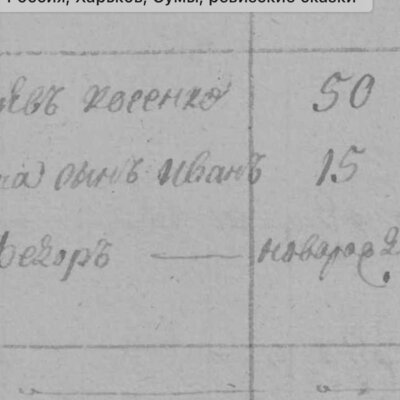 Россия, Харьков, Сумы, ревизские сказки
евъ Косенко 50
на сынъ Иванъ 15
Федоръ —